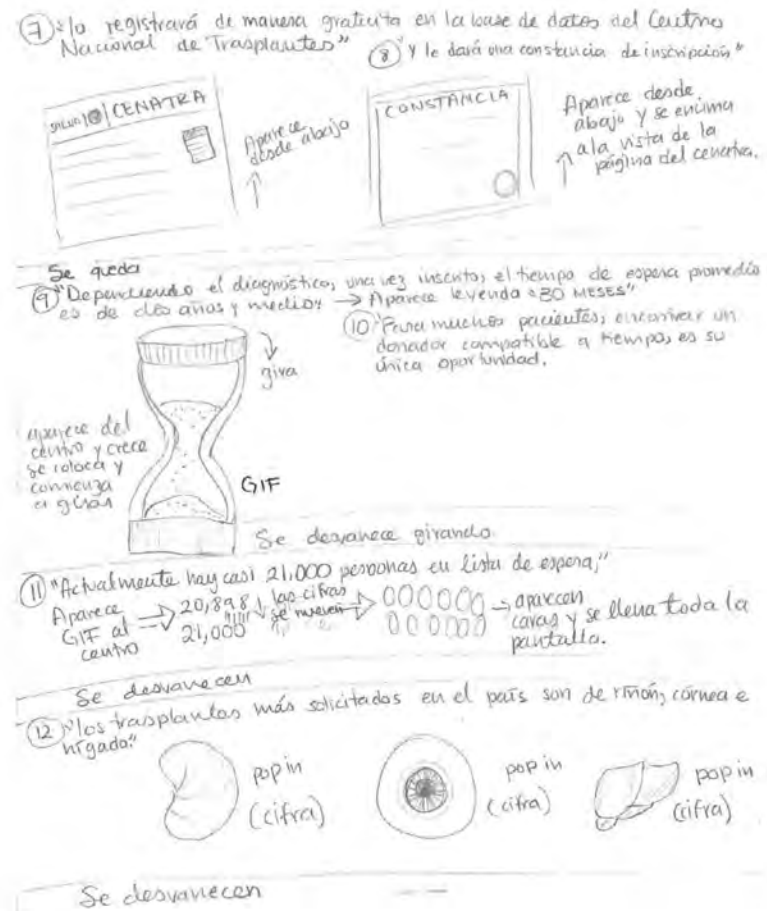 7 "lo registrará de manera gratuita en la base de datos del Centro
Nacional de Trasplantes"
8 "y le dará una constancia de inscripción"
SALUD | CENATRA
Aparece
desde abajo
CONSTANCIA
Aparece desde
abajo y se encima
a la vista de la
página del cenatra.
Se queda
9 "Dependiendo el diagnóstico, una vez inscrito, el tiempo de espera promedio
es de dos años y medio" → Aparece leyenda "30 MESES"
10 "Para muchos pacientes, encontrar un
donador compatible a tiempo, es su
única oportunidad.
gira
aparece del
centro y crece
se coloca y
comienza
a girar
GIF
Se desvanece girando
11 "Actualmente hay casi 21,000 personas en lista de espera,"
Aparece
GIF al
centro
20,898
21,000
las cifras
se mueven
aparecen
caras y se llena toda la
pantalla.
Se desvanecen
12 "los trasplantes más solicitados en el país son de riñón, córnea e
hígado."
pop in
(cifra)
pop in
(cifra)
pop in
(cifra)
Se desvanecen